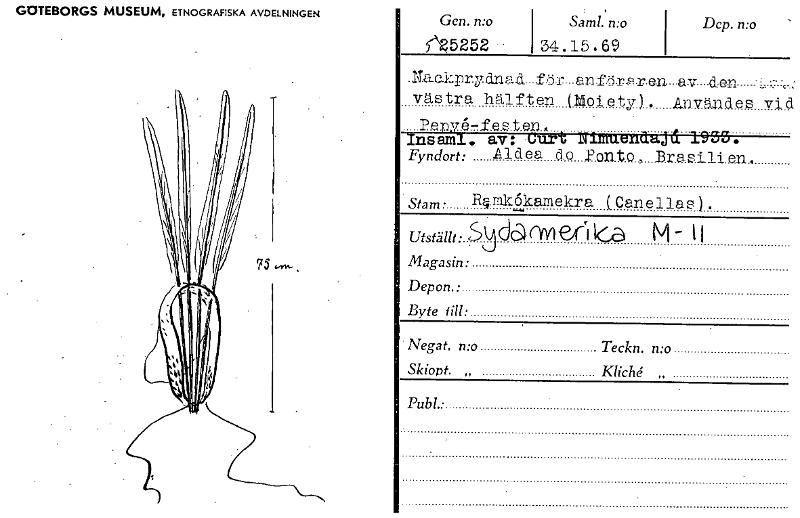 GÖTEBORGS MUSEUM, ETNOGRAFISKA AVDELNINGEN
75 cm.
Gen. n:o Saml. n:o Dep. n:o
25252 34.15.69
Nackprydnad för anföraren av den
västra hälften (Moiety). Användes vid
Penyé-festen.
Insaml. av: Curt Nimuendajú 1933.
Fyndort: Aldea do Ponto, Brasilien.
Stam: Ramkókamekra (Canellas).
Utställt: Sydamerika M-11
Magasin:
Depon.:
Byte till:
Negat. n:o Teckn. n:o
Skiopt. „ Kliché „
Publ.: